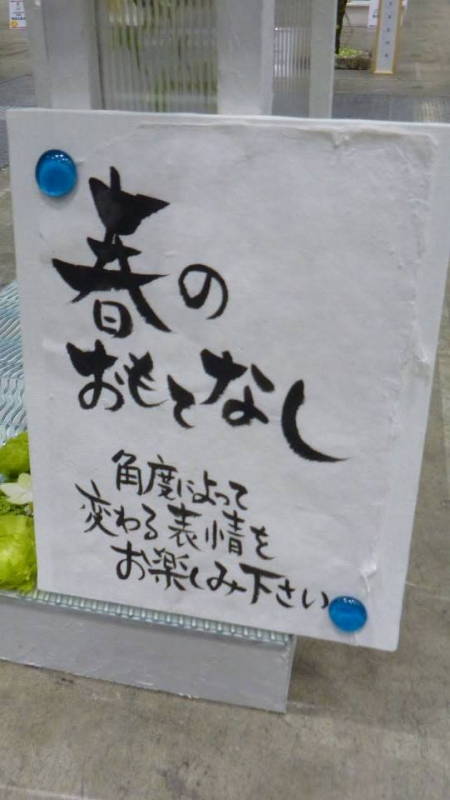 春の
おもてなし
角度によって
変わる表情を
お楽しみ下さい